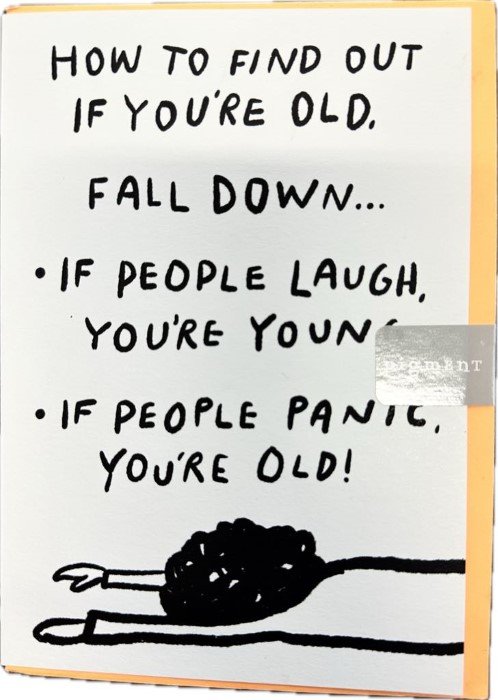 HOW TO FIND OUT
IF YOU'RE OLD.
FALL DOWN...
• IF PEOPLE LAUGH,
YOU'RE YOUN
PIGMENT
• IF PEOPLE PANIC,
YOU'RE OLD!